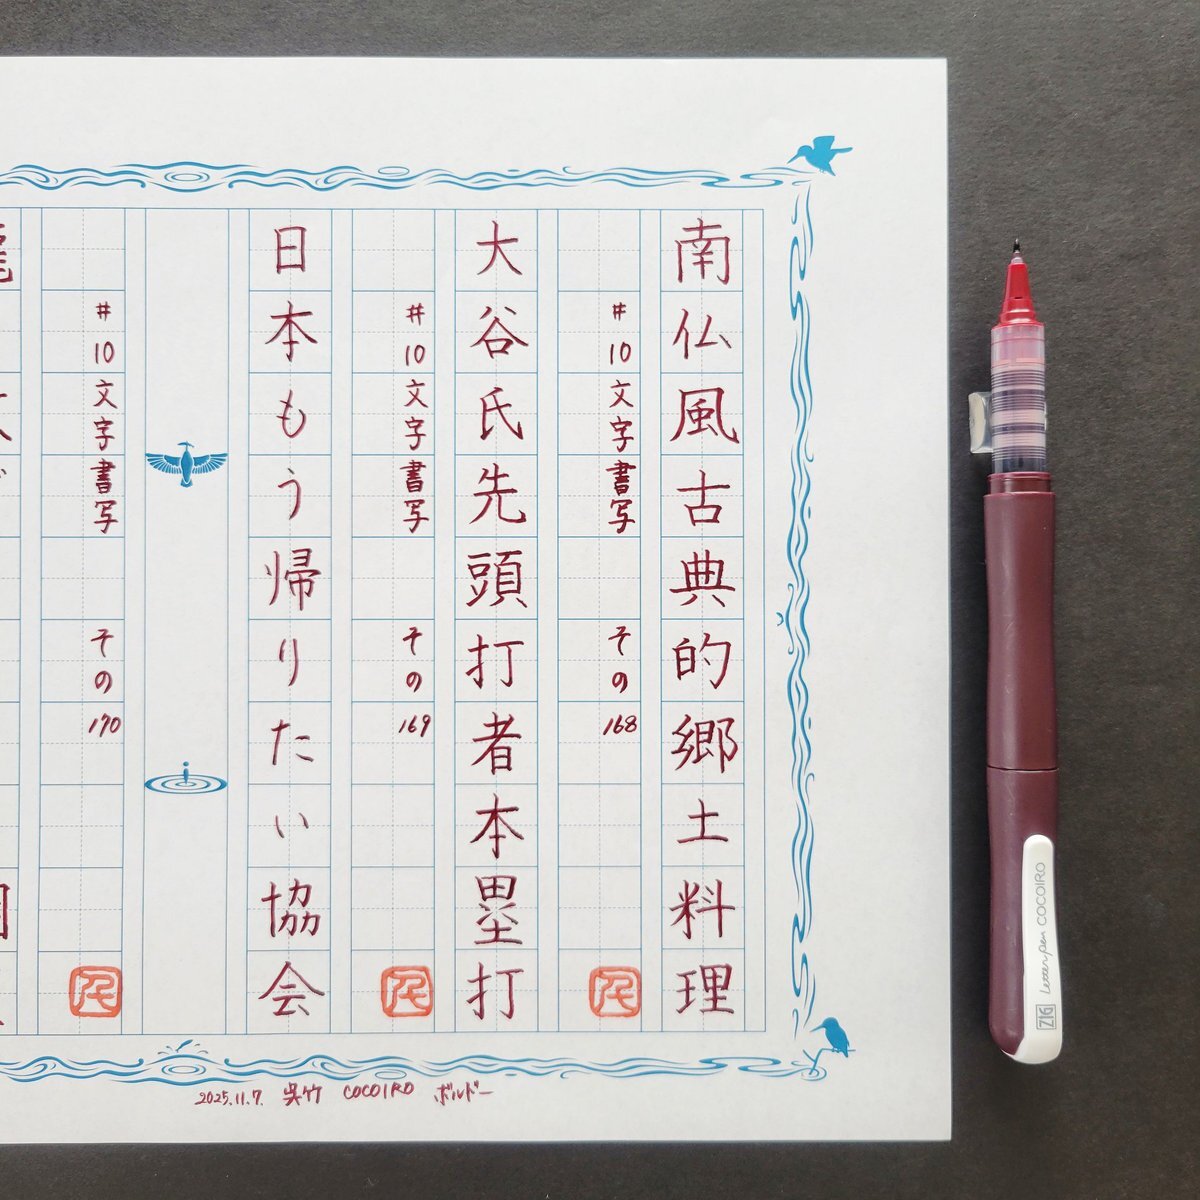 南仏風古典的郷土料理
#10文字書写 その168
大谷氏先頭打者本塁打
#10文字書写 その169
日本もう帰りたい協会
#10文字書写 その170
2025.11.7. 呉竹 COCOIRO ボルドー
ZIG Letter pen COCOIRO